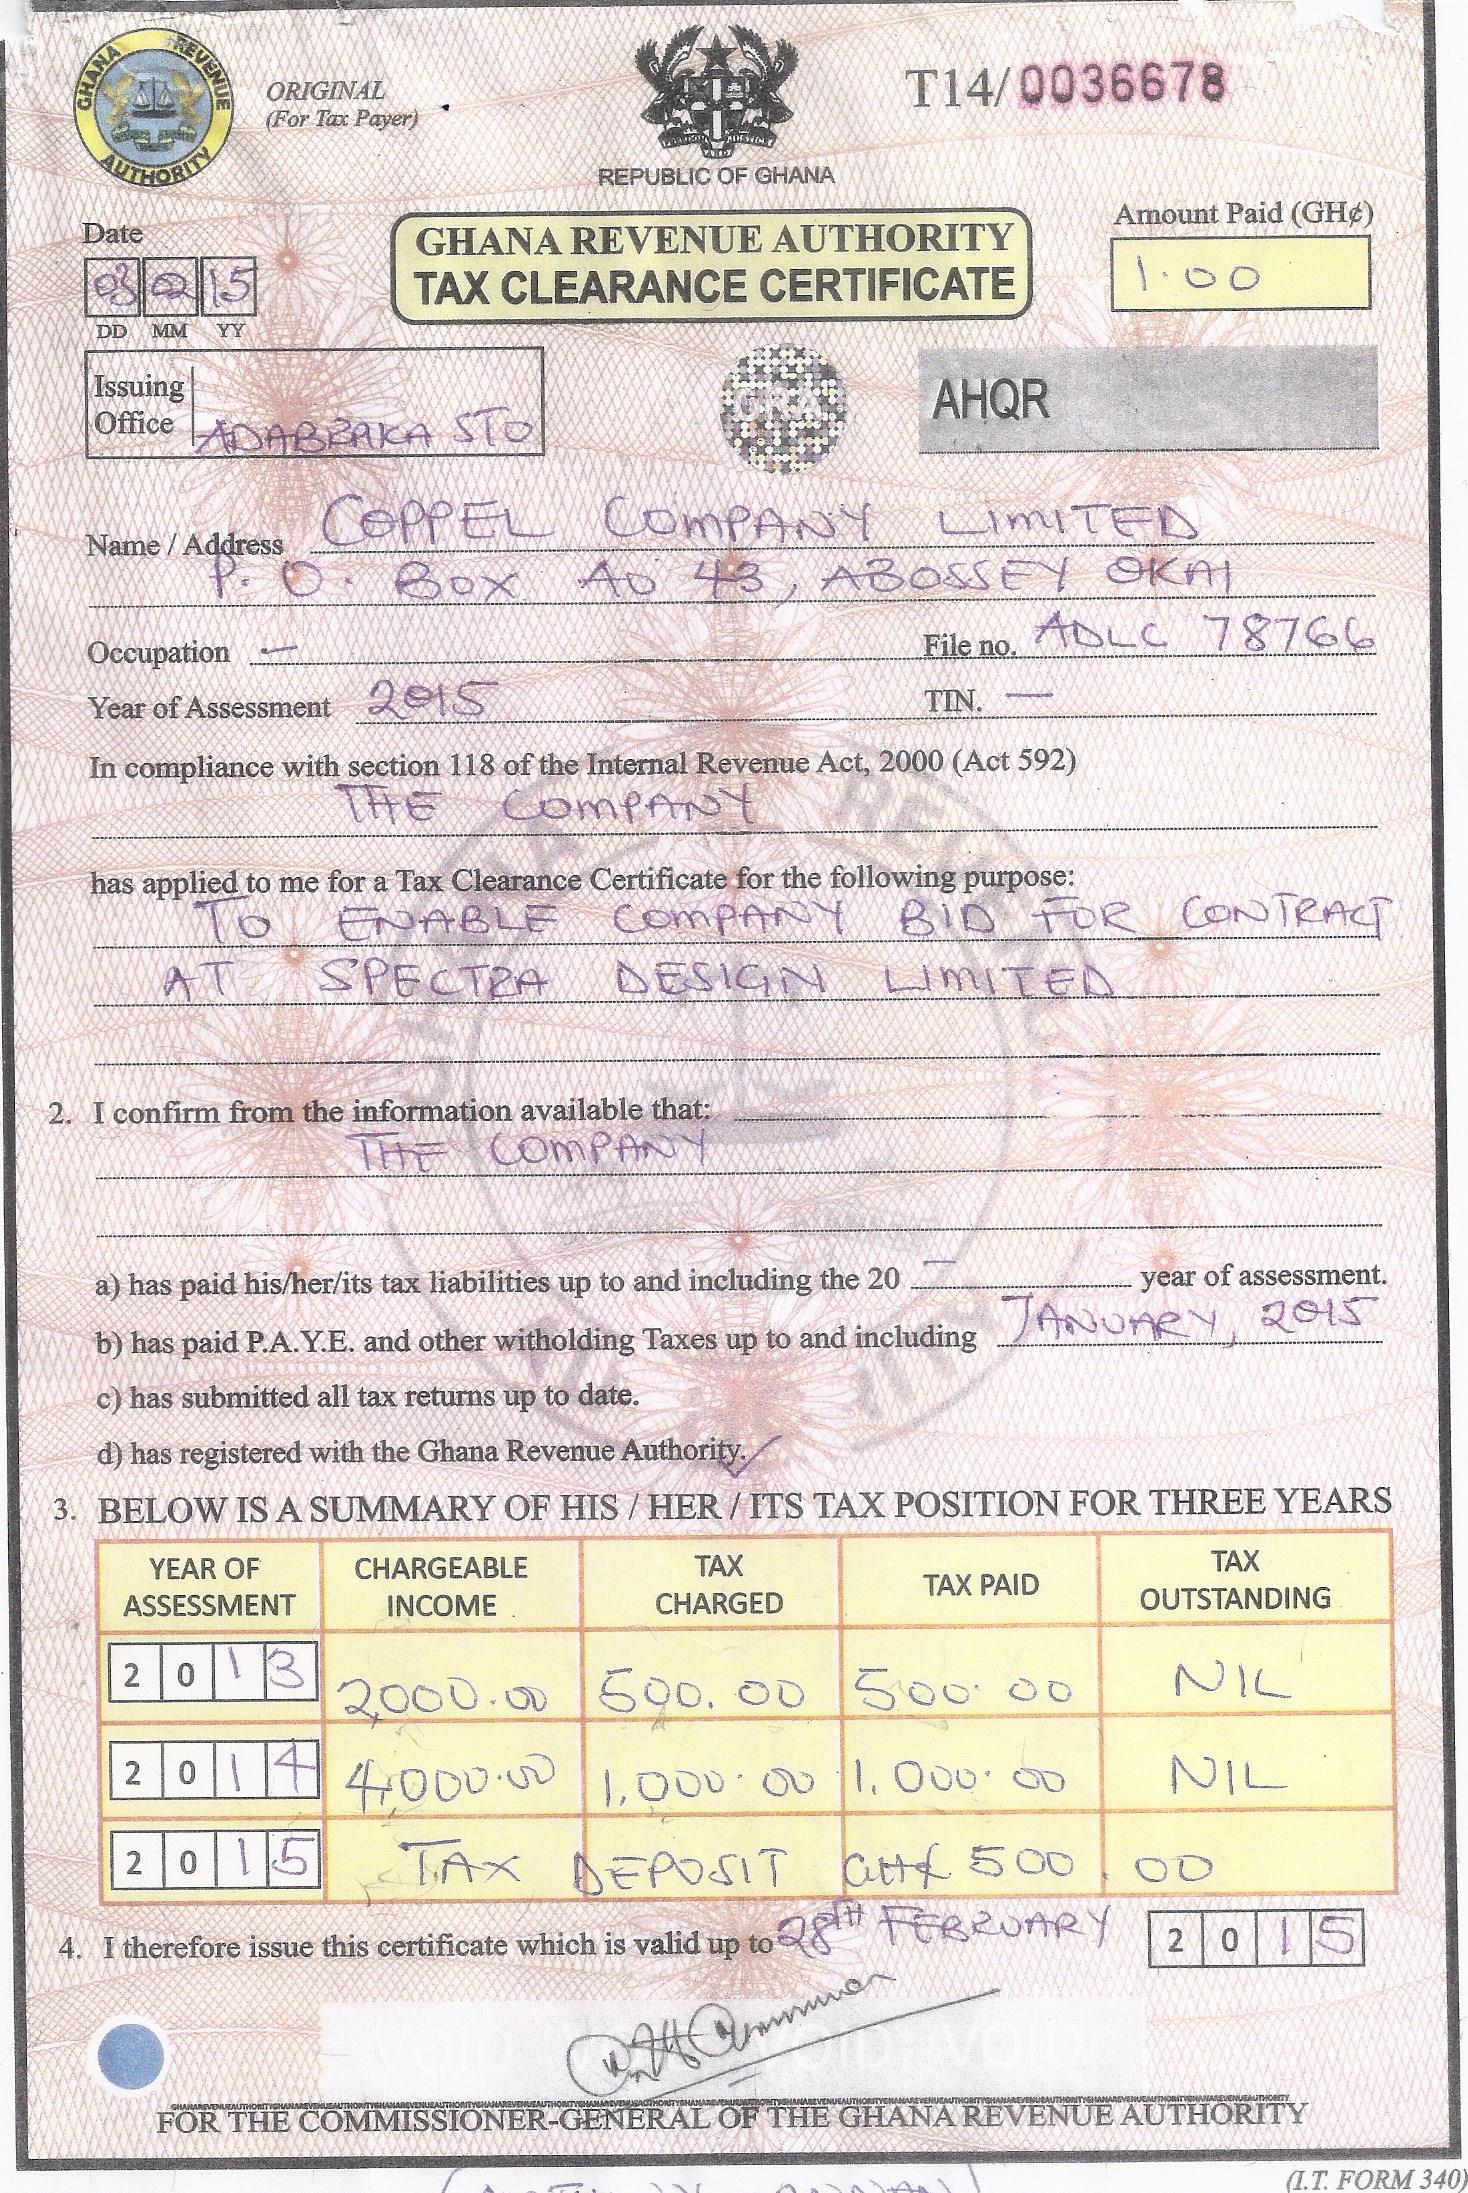 GHANA REVENUE AUTHORITY
ORIGINAL
(For Tax Payer)
REPUBLIC OF GHANA
T14/0036678
Date
03 02 15
DD MM YY
GHANA REVENUE AUTHORITY
TAX CLEARANCE CERTIFICATE
Amount Paid (GH¢)
1.00
Issuing Office ADABRAKA STO
GRA
AHQR
Name / Address COPPEL COMPANY LIMITED
P. O. BOX AO 43, ABOSSEY OKAI
Occupation — File no. ADLC 78766
Year of Assessment 2015 TIN. —
In compliance with section 118 of the Internal Revenue Act, 2000 (Act 592)
THE COMPANY
has applied to me for a Tax Clearance Certificate for the following purpose:
TO ENABLE COMPANY BID FOR CONTRACT
AT SPECTRA DESIGN LIMITED
2. I confirm from the information available that:
THE COMPANY
a) has paid his/her/its tax liabilities up to and including the 20 — year of assessment.
b) has paid P.A.Y.E. and other witholding Taxes up to and including JANUARY, 2015
c) has submitted all tax returns up to date.
d) has registered with the Ghana Revenue Authority. ✓
3. BELOW IS A SUMMARY OF HIS / HER / ITS TAX POSITION FOR THREE YEARS
YEAR OF ASSESSMENT CHARGEABLE INCOME TAX CHARGED TAX PAID TAX OUTSTANDING
2013 2,000.00 500.00 500.00 NIL
2014 4,000.00 1,000.00 1,000.00 NIL
2015 TAX DEPOSIT GH¢ 500.00
4. I therefore issue this certificate which is valid up to 28TH FEBRUARY 2015
VOID VOID VOID
FOR THE COMMISSIONER-GENERAL OF THE GHANA REVENUE AUTHORITY
(I.T. FORM 340)